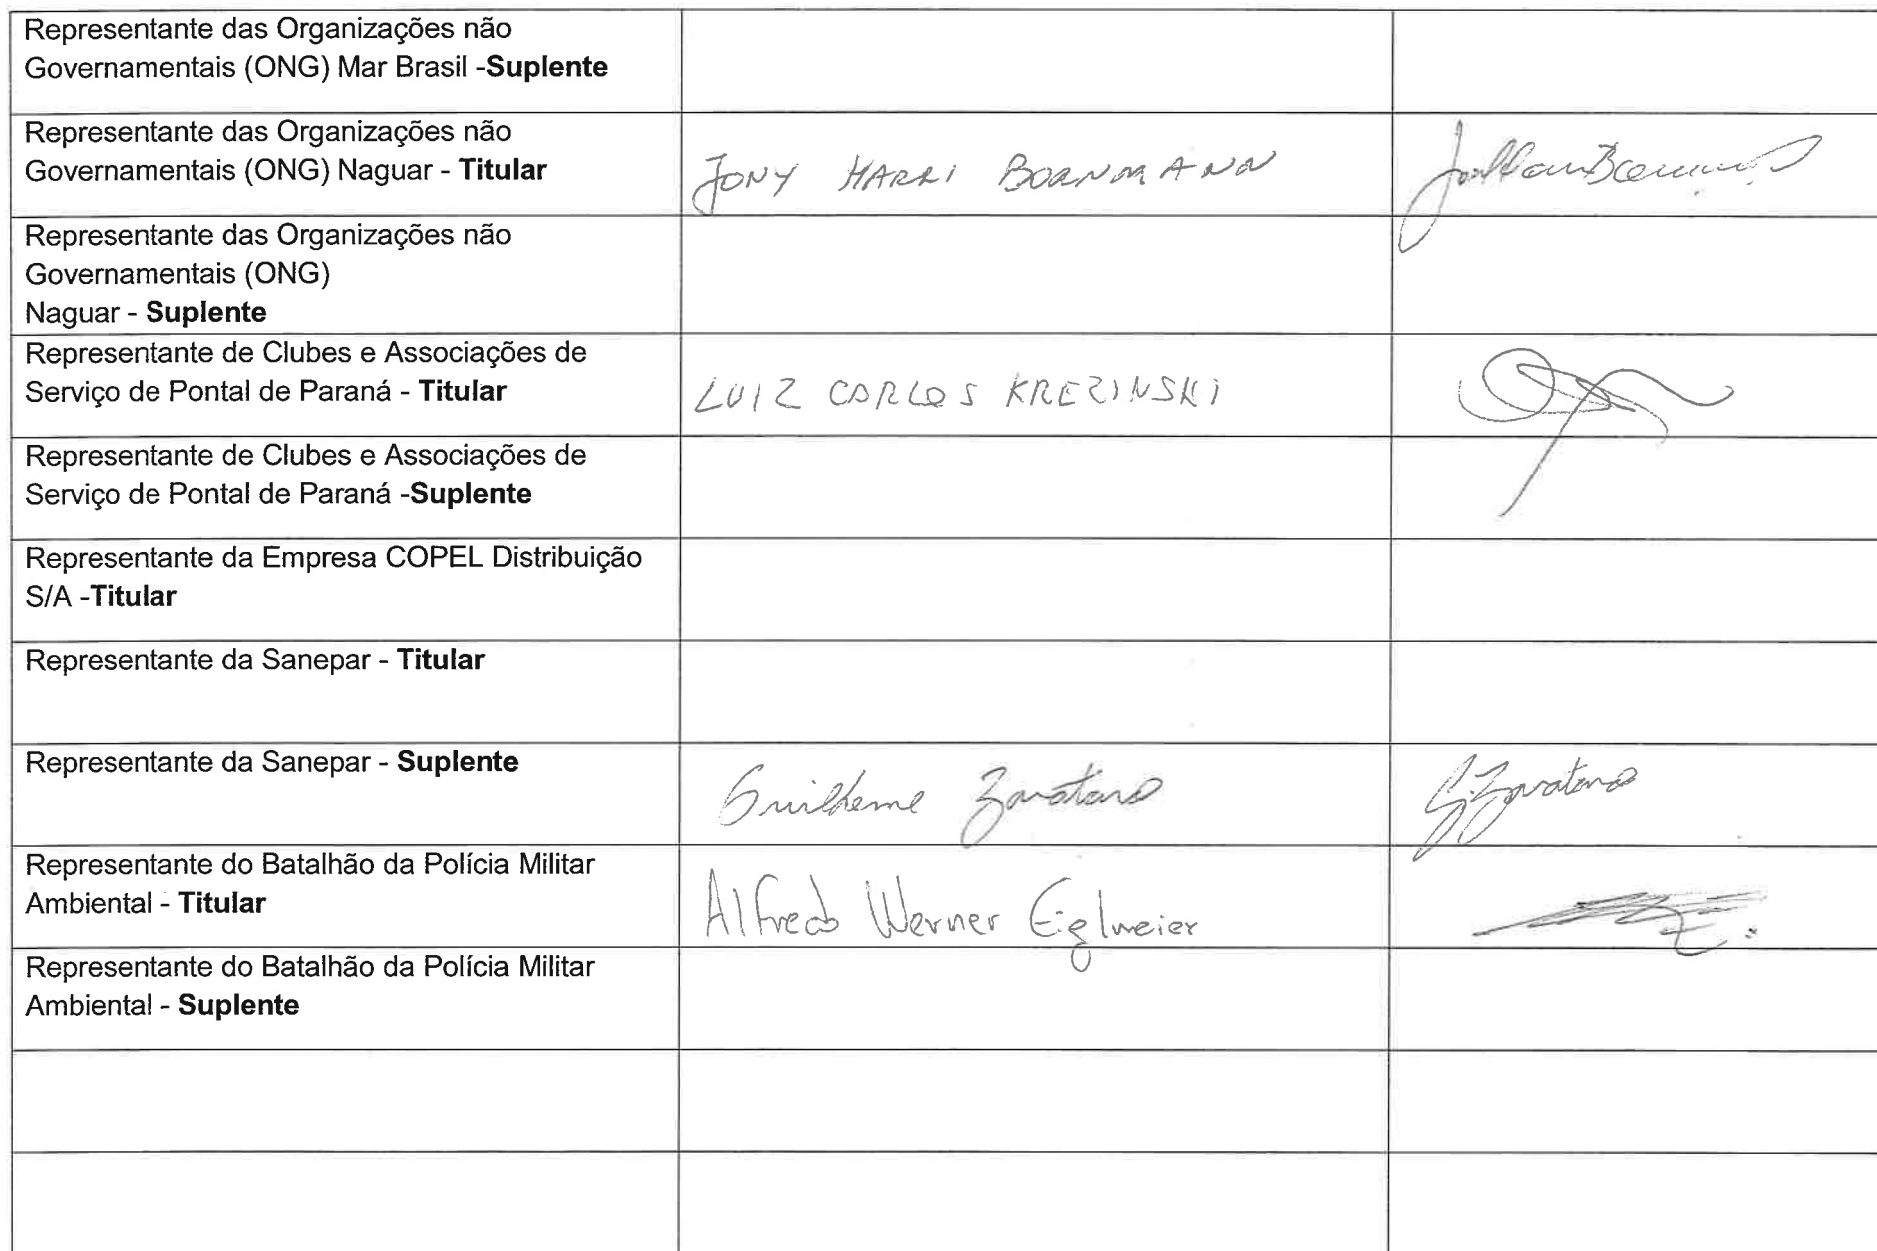 Representante das Organizações não
Governamentais (ONG) Mar Brasil -Suplente
Representante das Organizações não
Governamentais (ONG) Naguar - Titular
JONY HARRI BORNMANN
Representante das Organizações não
Governamentais (ONG)
Naguar - Suplente
Representante de Clubes e Associações de
Serviço de Pontal de Paraná - Titular
LUIZ CARLOS KREZINSKI
Representante de Clubes e Associações de
Serviço de Pontal de Paraná -Suplente
Representante da Empresa COPEL Distribuição
S/A -Titular
Representante da Sanepar - Titular
Representante da Sanepar - Suplente
Guilherme Zavataro
G. Zavataro
Representante do Batalhão da Polícia Militar
Ambiental - Titular
Alfredo Werner Eiglmeier
Representante do Batalhão da Polícia Militar
Ambiental - Suplente